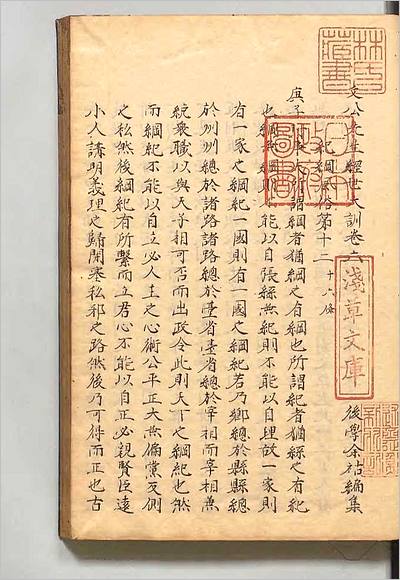 林氏藏書
文公先生經世大訓卷六 後學余祐編集
淺草文庫
日本政府圖書
紀綱風俗第十二 十六條
庚子 所謂綱者猶網之有綱也所謂紀者猶絲之有紀
也網無綱則不能以自張絲無紀則不能以自理故一家則
有一家之綱紀一國則有一國之綱紀若乃鄉總於縣縣總
於州州總於諸路諸路總於臺省臺省總於宰相而宰相兼
統衆職以與天子相可否而出政令此則天下之綱紀也然
而綱紀不能以自立必人主之心術公平正大無偏黨反側
之私然後綱紀有所繫而立君心不能以自正必親賢臣遠
小人講明義理之歸閉塞私邪之路然後乃可得而正也古